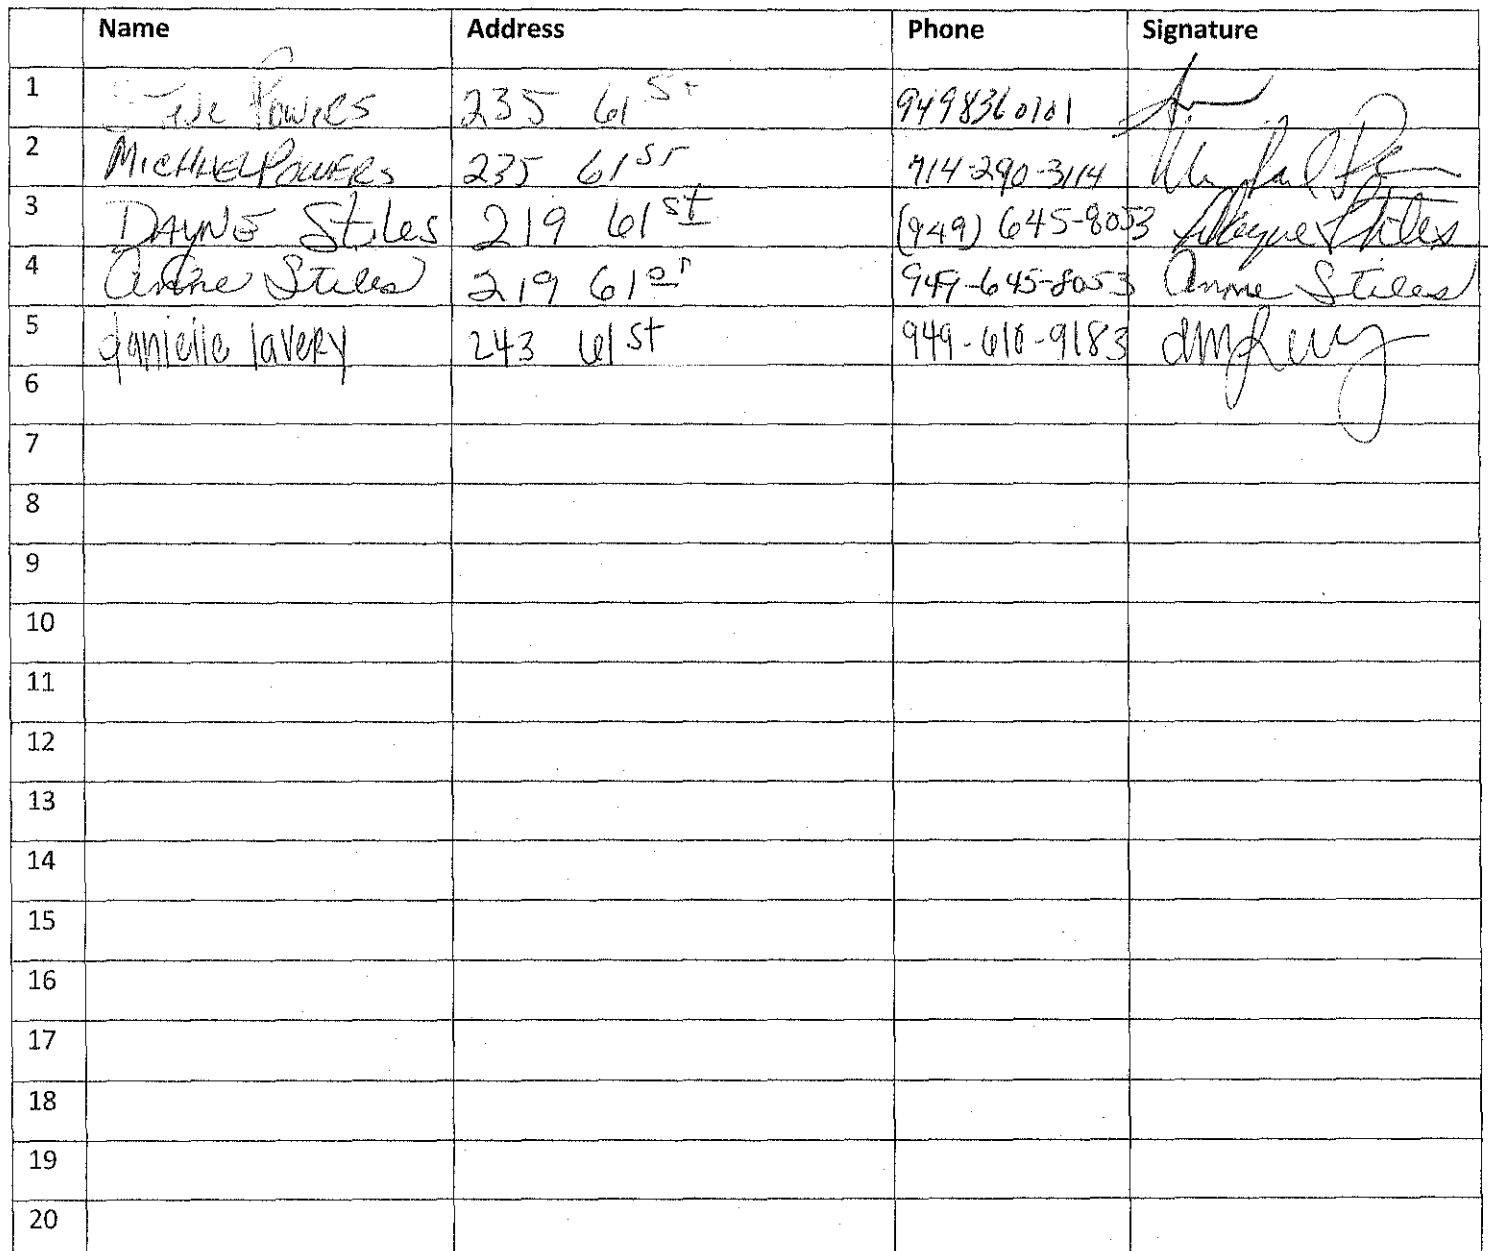 Name Address Phone Signature
1 Steve Powers 235 61 St 9498360101
2 Michael Powers 235 61 St 714-290-3114
3 DAYNE Stiles 219 61st (949) 645-8053 Dayne Stiles
4 Anne Stiles 219 61st 949-645-8053 Anne Stiles
5 danielle lavery 243 61 st 949-610-9183
6
7
8
9
10
11
12
13
14
15
16
17
18
19
20